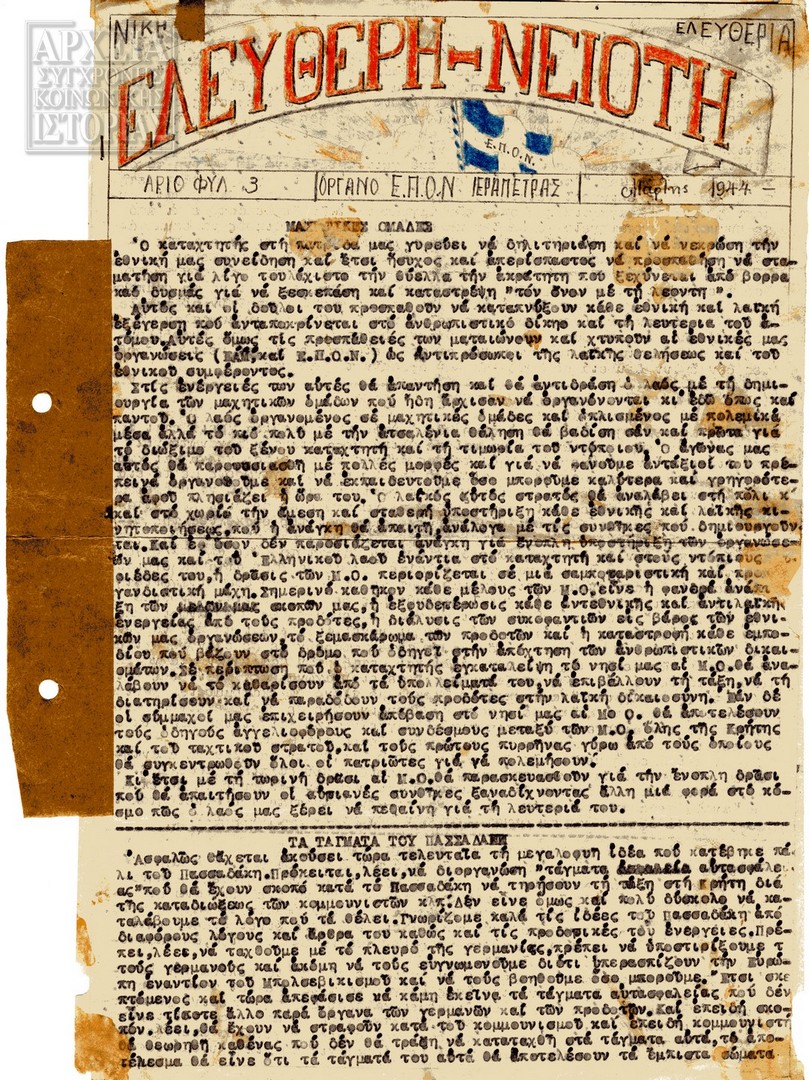 ΑΡΧΕΙΑ
ΣΥΓΧΡΟΝΗΣ
ΚΟΙΝΩΝΙΚΗΣ
ΙΣΤΟΡΙΑΣ
ΝΙΚΗ
ΕΛΕΥΘΕΡΙΑ
ΕΛΕΥΘΕΡΗ-ΝΕΙΟΤΗ
Ε.Π.Ο.Ν.
ΑΡΙΟ ΦΥΛ. 3
ΟΡΓΑΝΟ Ε.Π.Ο.Ν ΙΕΡΑΠΕΤΡΑΣ
Μάρτης 1944
ΟΜΑΔΕΣ
Ὁ καταχτητής στή πατρίδα μας γυρεύει νά δηλιτηριάση καί νά νεκρώση τήν
ἐθνική μας συνείδηση καί ἔτσι ἥσυχος καί ἀπερίσπαστος νά προσπαθήση νά στα-
ματήση γιά λίγο τουλάχιστο τήν θύελλα τήν ἀκράτητη πού ξεχύνεται ἀπό βορρα
καό δυσμάς γιά νά ξεσκεπάση καί καταστρέψη "τόν ὄνον μέ τή λεοντή ".
Αὐτός καί οἱ δοῦλοι του προσπαθοῦν νά καταπνύξουν κάθε ἐθνική καί λαϊκή
ἐξέγερση πού ἀνταποκρίνεται στό ἀνθρωπιστικό δίκηο καί τή λευτεριά τοῦ ἀ-
τόμου.Αὐτές ὅμως τίς προσπάθειές των ματαιώνουν καί χτυποῦν αἱ ἐθνικές μας
ὀργανώσεις ( καί Ε.Π.Ο.Ν.) ὡς ἀντιπρόσωποι τῆς λαϊκῆς θελήσεως καί τοῦ
ἐθνικοῦ συμφέροντος.
Στίς ἐνέργειές των αὐτές θά ἀπαντήση καί θά ἀντιδράση ὁ λαός μέ τή δημι-
ουργία τῶν μαχητικῶν ὁμάδων πού ἤδη ἄρχισαν νά ὀργανόνονται κι' ἐδῶ ὅπως καί
παντοῦ. Ὁ λαός ὀργανομένος σέ μαχητικές ὁμάδες καί ὁπλισμένος μέ πολεμικά
μέσα ἀλλά τό πιό πολύ μέ τήν ἀτσαλένια θέληση θά βαδίση σάν καί πρῶτα γιά
τό διώξιμο τοῦ ξένου καταχτητή καί τή τιμωρία τοῦ ντόπιου. Ὁ ἀγῶνας μας
αὐτός θά παρουσιασθῆ μέ πολλές μορφές καί γιά νά φανοῦμε ἀντάξιοί του πρέ-
πει νά ὀργανοθοῦμε καί νά ἐκπαιδευτοῦμε ὅσο μποροῦμε καλύτερα καί γρηγορότε-
ρα ἀφοῦ πλησιάζει ἡ ὥρα του. Ὁ λαϊκός αὐτός στρατός θά ἀναλάβει στή πόλι κ'
καί στό χωριό τήν ἄμεση καί σταθερή ὑποστήριξη κάθε ἐθνικῆς καί λαϊκῆς κι-
νητοποιήσεως,πού ἡ ἀνάγκη θά ἀπαιτῆ ἀνάλογα μέ τίς συνθῆκες πού δημιουργοῦν
ται.Καί ἐφ' ὅσον δέν παροσιάζεται ἀνάγκη γιά ἔνοπλη ὑποστήριξη τῶν ὀργανώσε-
ῶν μας καί τοῦ Ἑλληνικοῦ λαοῦ ἐνάντια στό καταχτητή καί στούς ντόπιους
φιέδες του,ἡ δρᾶσις τῶν Μ.Ο. περιορίζεται σέ μιά σαμποταριστική καί
γανδιστική μάχη.Σημερινό καθῆκον κάθε μέλους τῶν Μ.Ο.εἶνε ἡ φανδρά
ξη τῶν σκοπῶν μας,ἡ ἐξουδετέρωσις κάθε ἀντεθνικῆς καί ἀντιλαϊκῆς
ἐνεργείας ἀπό τούς προδότες,ἡ διάλυσις τῶν συκοφαντιῶν εἰς βάρος τῶν ἐθνι-
κῶν μας ὀργανώσεων,τό ξεμασκάρωμα τῶν προδοτῶν καί ἡ καταστροφή κάθε ἐμπο-
δίου πού βάζουν στό δρόμο πού ὁδηγεῖ στήν ἀπόχτηση τῶν ἀνθρωπιστικῶν δικαι-
ομάτων.Σέ περίπτωση πού ὁ καταχτητής ἐγκαταλείψη τό νησί μας αἱ Μ.Ο.θά ἀνα-
λάβουν νά τό καθαρίσουν ἀπό τά ὑπολλείματά του,νά ἐπιβάλλουν τή τάξη,νά τή
διατηρίσουν καί νά παραδόσουν τούς προδότες στήν λαϊκή δικαιοσύνη. Ἐάν δέ
οἱ σύμμαχοί μας ἐπιχειρήσουν ἀπόβαση στό νησί μας αἱ Μο Ο. θά ἀποτελέσουν
τούς ὁδηγούς ἀγγελιοφόρους καί συνδέσμους μεταξύ τῶν Μ.Ο. ὅλης τῆς Κρήτης
καί τοῦ ταχτικοῦ στρατοῦ,καί τούς πρώτους πυρρῆνας γύρω ἀπό τούς ὁποίους
θά συγκεντρωθοῦν ὅλοι οἱ πατριῶτες γιά νά πολεμήσουν.
Κι' ἔτσι μέ τή τωρινή δρᾶσι αἱ Μ.Ο.θά παρασκευαστοῦν γιά τήν ἔνοπλη δρᾶσι
πού θά ἀπαιτήσουν οἱ αὐριανές συνθῆκες ξαναδίχνοντας ἄλλη μιά φορά στό κό-
σμο πώς ὁ λαός μας ξέρει νά πεθαίνη γιά τή λευτεριά του.
ΤΑ ΤΑΓΜΑΤΑ ΤΟΥ ΠΑΣΣΑΔΑΚΗ
Ἀσφαλῶς θἄχεται ἀκούσει τώρα τελευταῖα τή μεγαλοφυῆ ἰδέα πού κατέβηκε πά-
λι τοῦ Πασσαδάκη.Πρόκειται,λέει,νά διοργανώση "τάγματα αὐτασφαλεί-
ας"πού θά ἔχουν σκοπό κατά τό Πασσαδάκη νά τηρήσουν τή τάξη στή Κρήτη διά
τῆς καταδιώξεως τῶν κομμουνιστῶν κλπ.Δέν εἶνε ὅμως καί πολύ δύσκολο νά κα-
ταλάβουμε τό λόγο πού τά θέλει.Γνωρίζομε καλά τίς ἰδέες τοῦ Πασσαδάκη ἀπό
διαφόρους λόγους καί ἄρθρα του καθώς καί τίς προδοτικές του ἐνέργειες.Πρέ-
πει,λέει,νά ταχθοῦμε μέ τό πλευρό τῆς γερμανίας,πρέπει νά ὑποστιρίξουμε τ
τούς γερμανούς καί ἀκόμη νά τούς εὐγνωμονοῦμε διότι ὑπερασπίζουν τήν Εὐρώ-
πη ἐναντίον τοῦ Μπολσεβικισμοῦ καί νά τούς βοηθοῦμε ὅσο μποροῦμε. Ἔτσι σκε
πτόμενος καί τώρα ἀπεφάσισε νά κάμη ἐκεῖνα τά τάγματα αὐτασφαλείας πού δέν
εἶνε τίποτε ἄλλο παρά ὄργανα τῶν γερμανῶν καί τῶν προδοτῶν.Καί ἐπειδή σκο-
πόν.λέει,θά ἔχουν νά στραφοῦν κατά τοῦ κομμουνισμοῦ καί ἐπειδή κομμουνιστή
θά θεωρηθῆ καθένας πού δέν θά τράξη νά καταταχθῆ στά τάγματα αὐτά,τό ἀπο-
τέλεσμα θά εἶνε ὅτι τά τάγματά του αὐτά θά ἀποτελέσουν τά ἔμπιστα σώματα